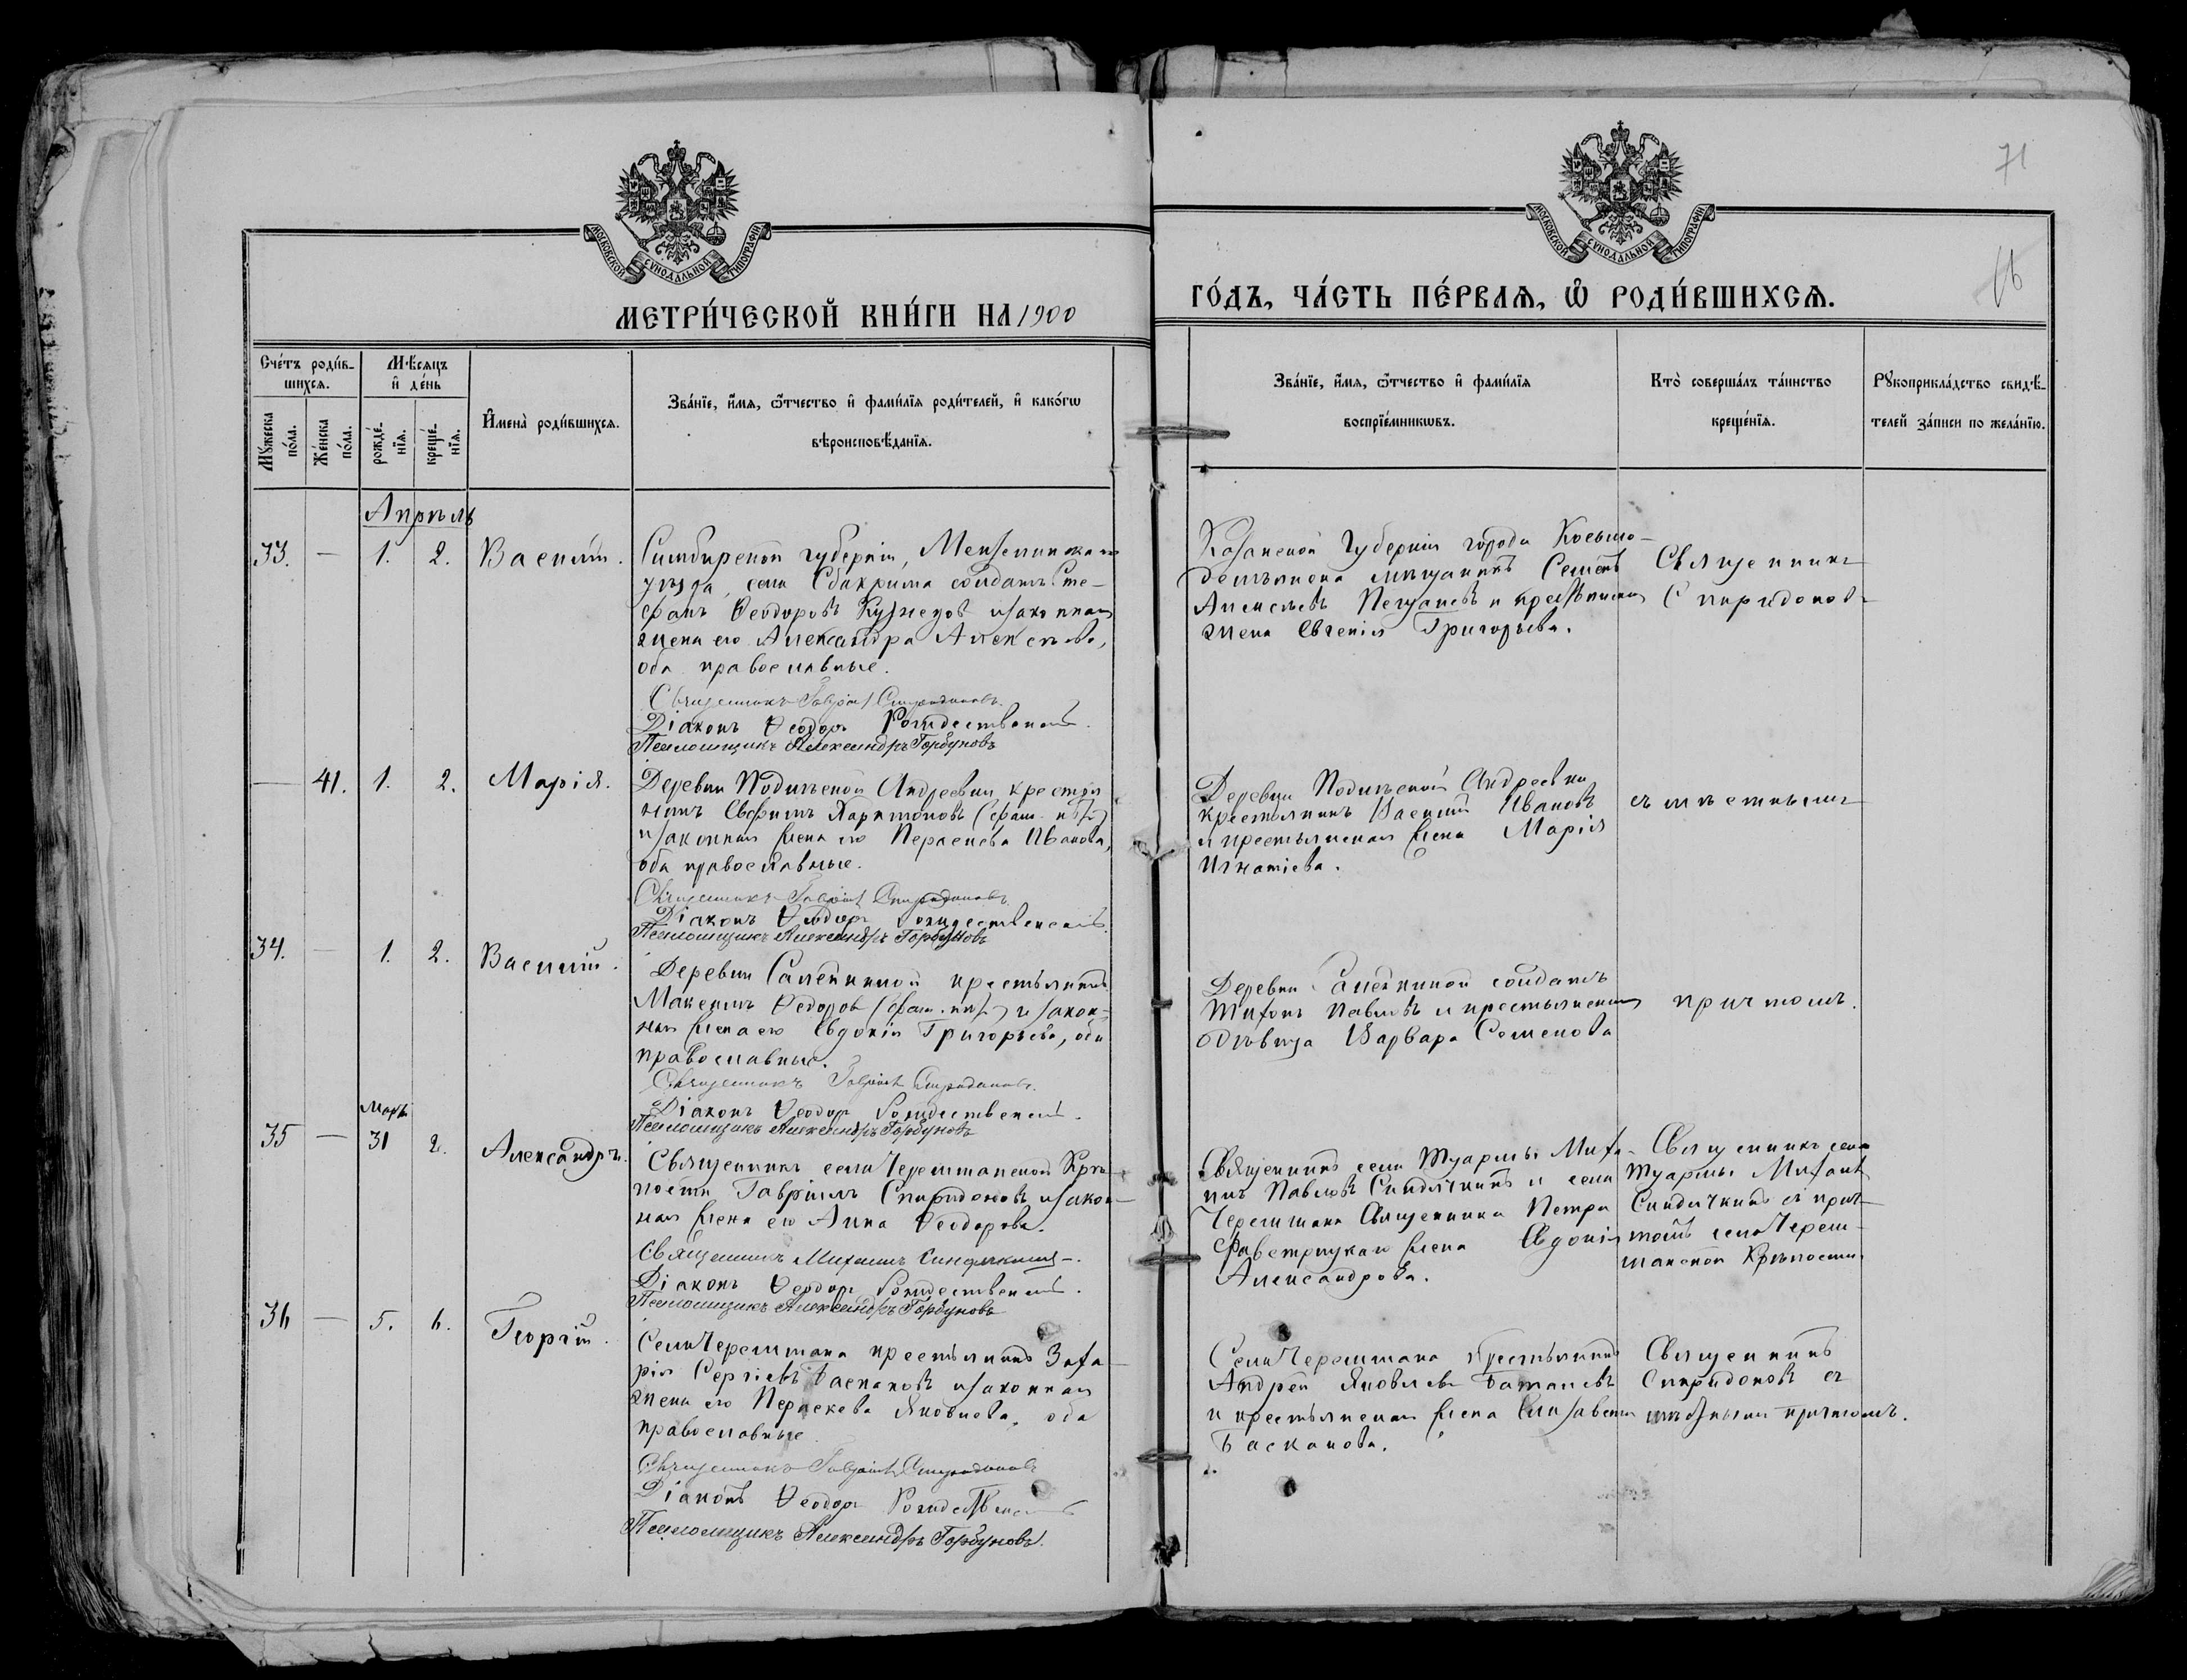 71
16
МОСКОВСКОЙ СѴНОДАЛЬНОЙ ТИПОГРАФІИ
МОСКОВСКОЙ СѴНОДАЛЬНОЙ ТИПОГРАФІИ
МЕТРИ́ЧЕСКОЙ КНИ́ГИ НА 1900
ГО́ДЪ, ЧА́СТЬ ПЕ́РВАѦ, Ѡ҆ РОДИ́ВШИХСѦ.
Сче́тъ роди́в-
шихсѧ.
Мꙋжеска по́ла.
Же́нска по́ла.
Мѣ́сѧцъ
и҆ де́нь
рожде́-
нїѧ.
креще́-
нїѧ.
И҆мена̀ роди́вшихсѧ.
Зва́нїе, и҆́мѧ, ѻ҆́тчество и҆ фами́лїѧ роди́телей, и҆ како́гѡ
вѣроисповѣ́данїѧ.
Зва́нїе, и҆́мѧ, ѻ҆́тчество и҆ фами́лїѧ
воспрїе́мникѡвъ.
Кто̀ соверша́лъ та́инство
креще́нїѧ.
Рꙋкоприкла́дство свидѣ́-
телей за́писи по жела́нїю.
Апрѣль
33. — 1. 2. Василій.
Симбирской губерніи,
уѣзда, села солдатъ Сте-
фанъ Ѳеодоровъ Кузнецовъ и законная
жена его Александра Алексѣева,
оба православные.
Священникъ Гавріилъ Спиридоновъ.
Діаконъ Ѳеодоръ Рождественскій.
Псаломщикъ Александръ Горбуновъ
Казанской Губерніи города Козьмо-
демьянска мѣщанинъ Семенъ
Алексѣевъ и крестьянская
жена Евгенія Григорьева.
Священникъ
Спиридоновъ
— 41. 1. 2. Марія.
Деревни Подлѣсной Андреевки крестья
нинъ Евфимъ Харитоновъ (фам. нѣтъ)
и законная жена его Параскева Иванова,
оба православные.
Священникъ Гавріилъ Спиридоновъ
Діаконъ Ѳеодоръ Рождественскій.
Псаломщикъ Александръ Горбуновъ
Деревни Подлѣсной Андреевки
крестьянинъ Василій Ивановъ
и крестьянская жена Марія
Игнатіева.
съ мѣстнымъ
34. — 1. 2. Василій.
Деревни Салейкиной крестьянинъ
Максимъ Ѳедоровъ (фам. нѣтъ) и закон-
ная жена его Евдокія Григорьева, оба
православные.
Священникъ Гавріилъ Спиридоновъ.
Діаконъ Ѳеодоръ Рождественскій.
Псаломщикъ Александръ Горбуновъ
Деревни Салейкиной солдатъ
Тихонъ Павловъ и крестьянская
дѣвица Варвара Семенова
причтомъ.
Мартъ
35 — 31 2. Александръ.
Священникъ села Черемшанской Крѣ-
пости Гавріилъ Спиридоновъ и закон-
ная жена его Анна Ѳеодорова.
Священникъ Михаилъ
Діаконъ Ѳеодоръ Рождественскій.
Псаломщикъ Александръ Горбуновъ
Священникъ села Туармы Миха-
илъ Павловъ и села
Черемшана Священника Петра
жена Евдокія
Александрова.
Священникъ села
Туармы Михаилъ
съ прич-
томъ села Черем-
шанской Крѣпости
36 — 5. 6. Георгій.
Села Черемшана крестьянинъ Заха-
рія Сергіевъ Баскаковъ и законная
жена его Параскева Яковлева, оба
православные
Священникъ Гавріилъ Спиридоновъ
Діаконъ Ѳеодоръ Рождественскій
Псаломщикъ Александръ Горбуновъ.
Села Черемшана крестьянинъ
Андрей Яковлевъ
и крестьянская жена Елисавета
Баскакова.
Священникъ
Спиридоновъ съ
мѣстнымъ причтомъ.